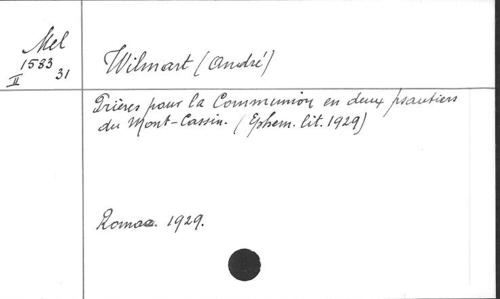 Mel
1583
II 31
Wilmart (André)
Prières pour la Communion en deux psautiers
du Mont-Cassin. (Ephem. lit. 1929)
Romae. 1929.